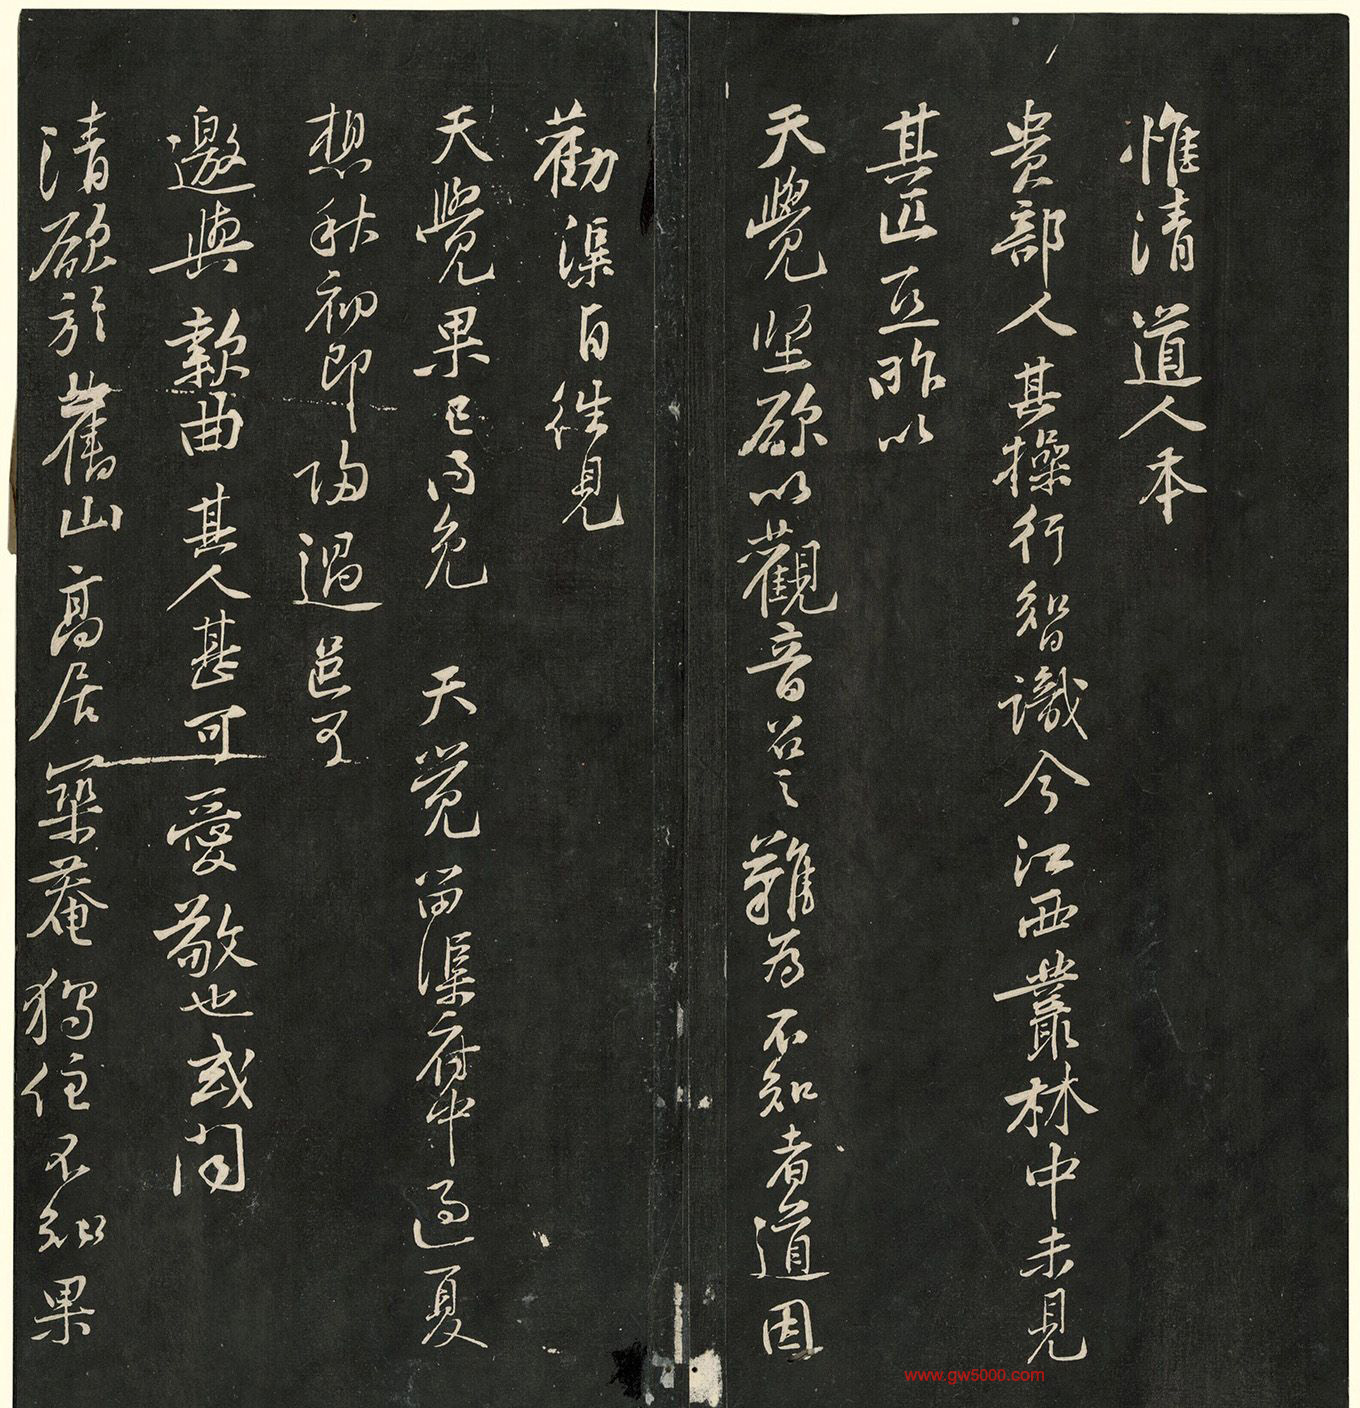 惟清道人本
贵部人其操行智識今江西叢林中未見
其匹亞昨以
天覺坚欲以觀音召之難為不知者道因
勸渠自往見
天覺果已得免天觉留渠府中過夏
想秋初即歸過邑可
邀與款曲其人甚可愛敬也或问
清欲於舊山高居築菴獨住不知果
www.gw5000.com